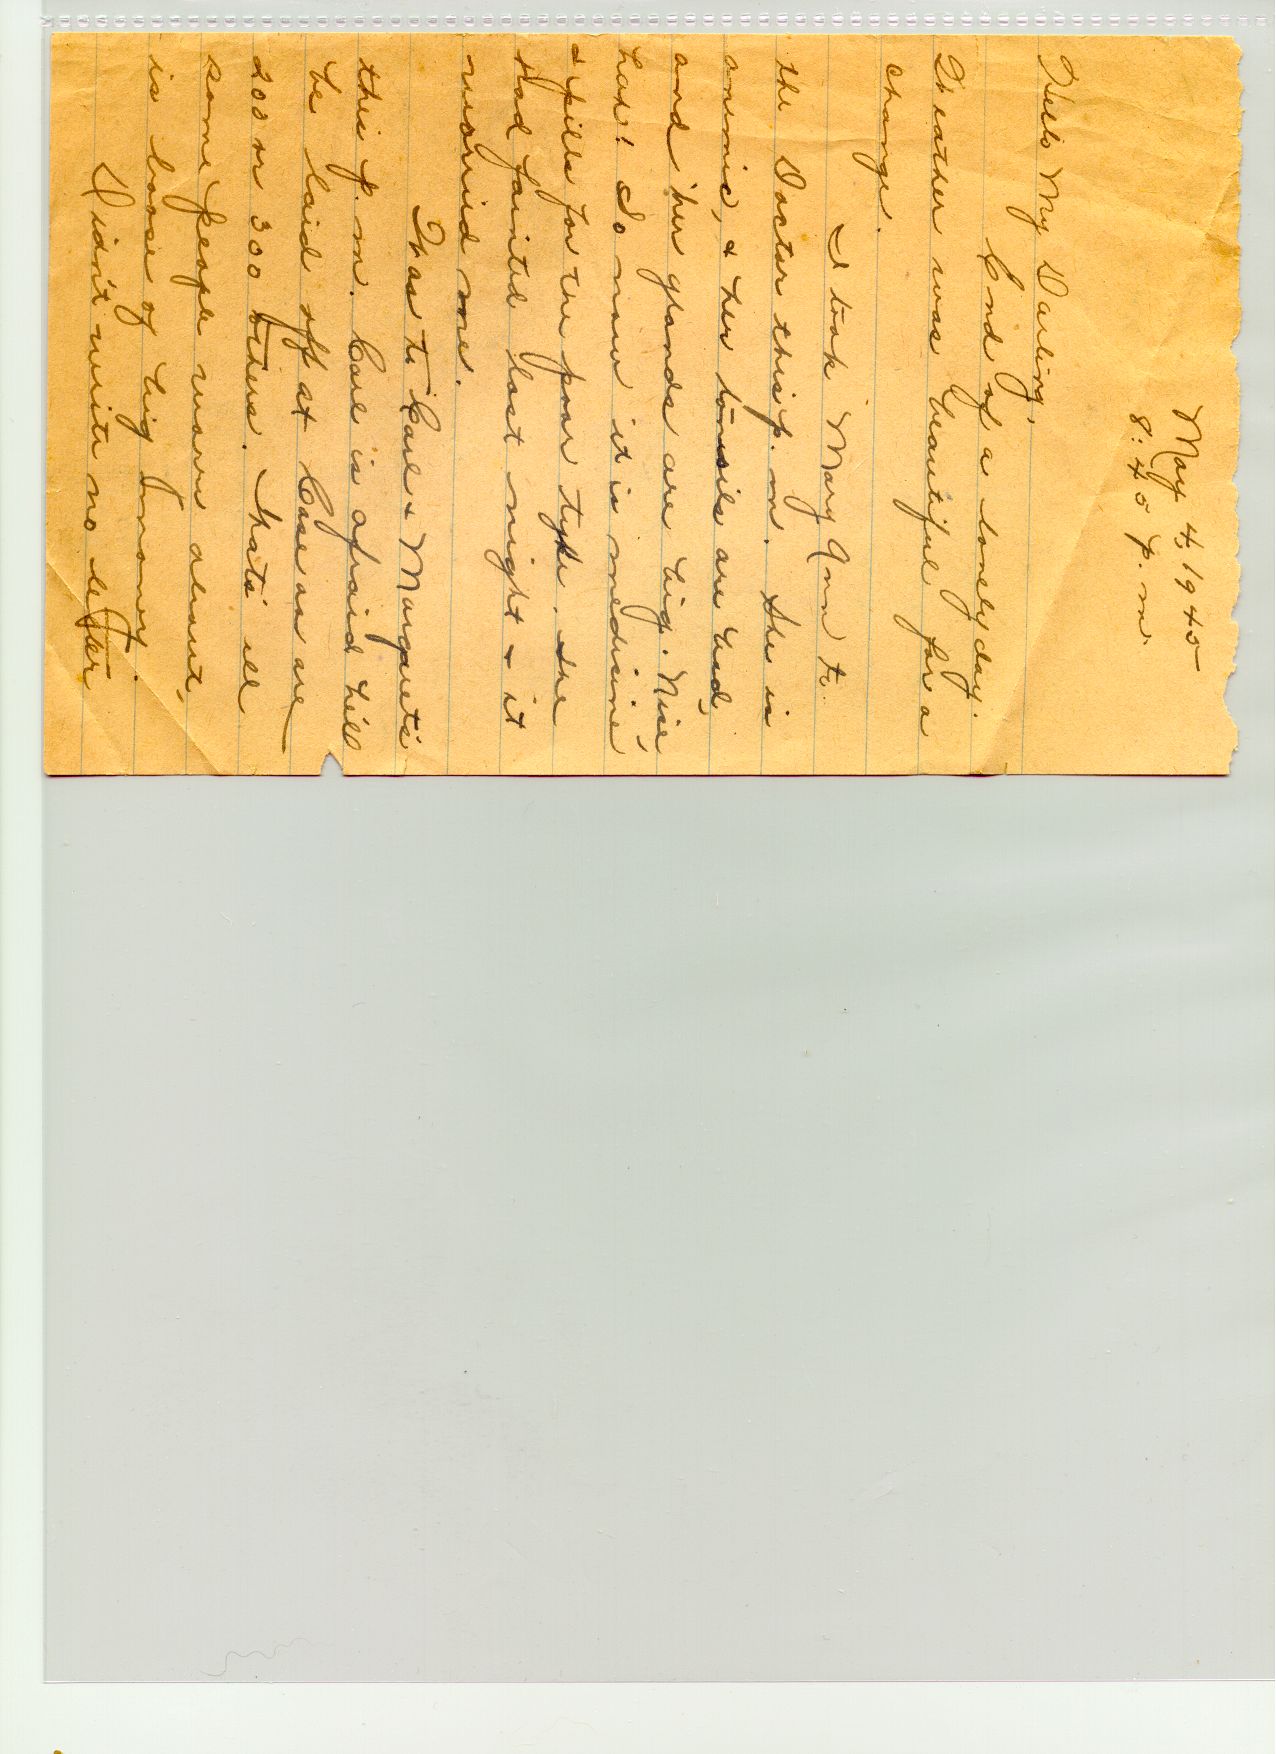 May 4, 1945
8:45 p.m.
Hello My Darling,
End of a lonely day.
Weather was beautiful for a
change.
I took Mary Ann to
the Doctor this p.m. She is
anemic, & her tonsils are bad,
and her glands are big. Nice,
huh! So now it is medicine
& pills for the poor tyke. She
had fainted last night & it
worried me.
Was to Carl & Margaret's
this p.m. Carl is afraid he'll
be laid off at Case as are
200 or 300 others. That's all
some people worry about,
is loose of big money.
Didn't write no letter